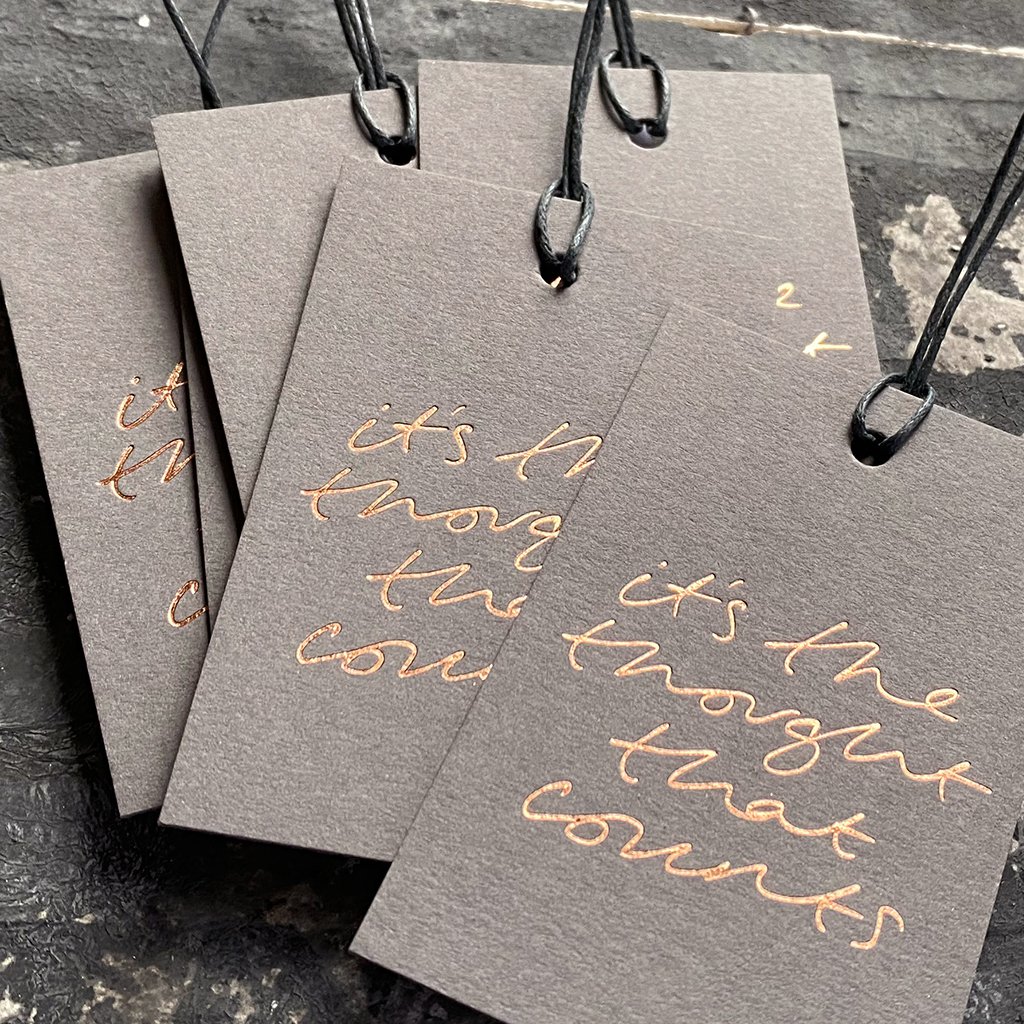 it's the
thought
that
counts
it's
thoug
the
cou
it
th
c
2